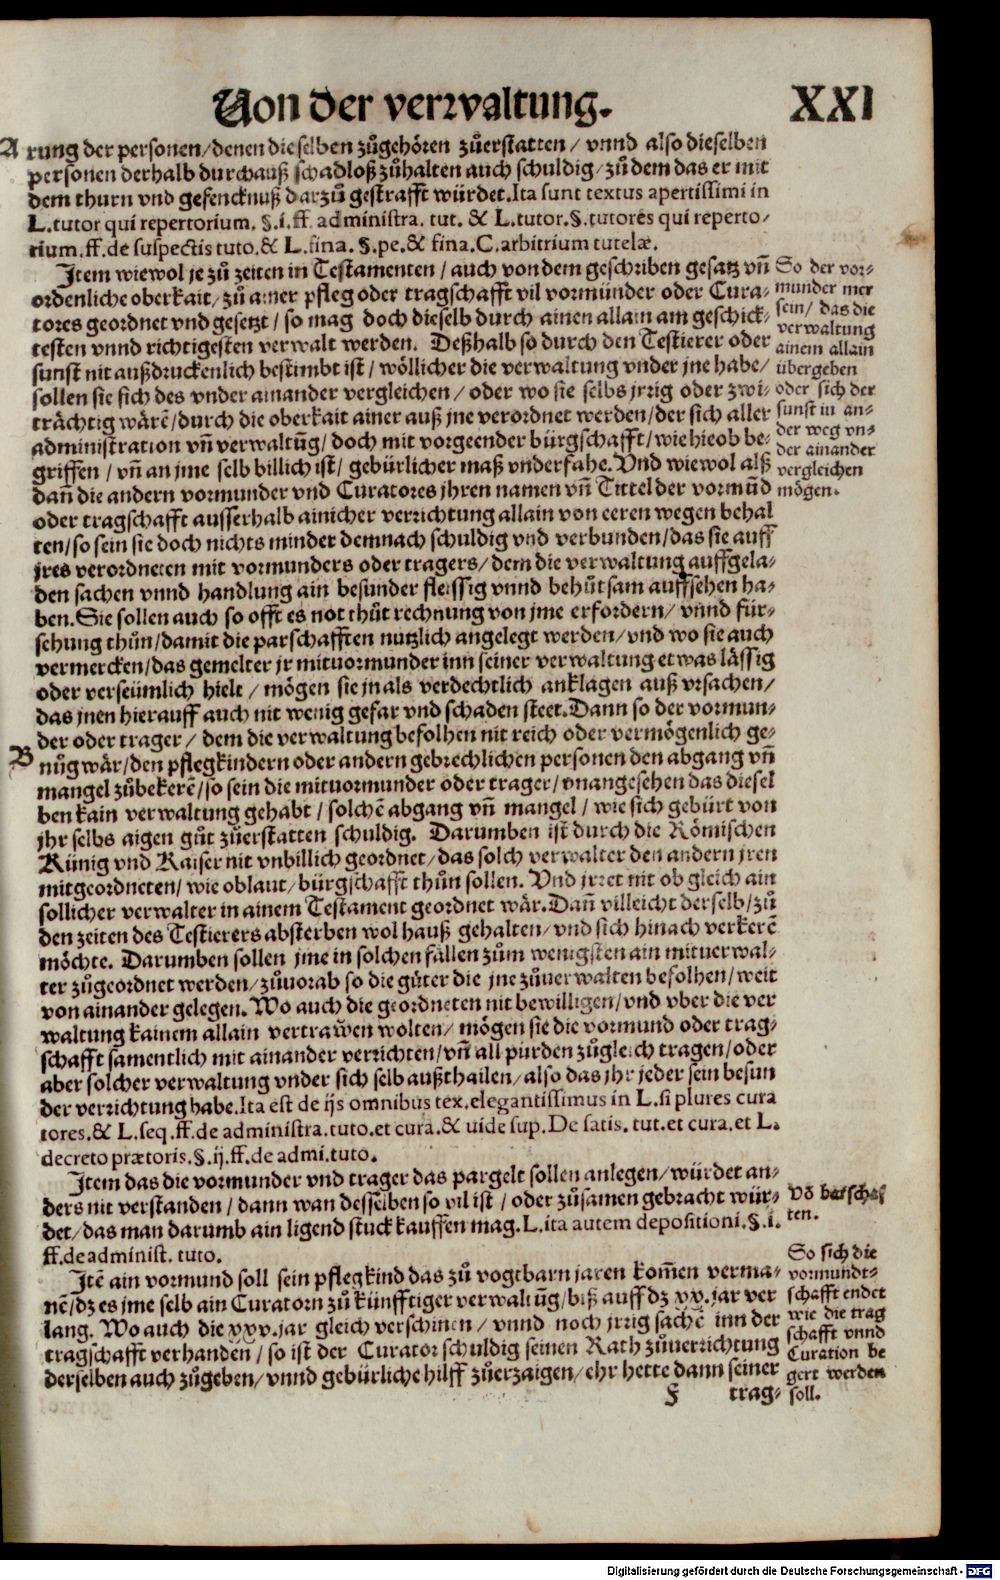 Von der verwaltung. XXI
A rung der personen/denen dieselben zůgehören zůerstatten/ vnnd also dieselben
personen derhalb durchauß schadloß zůhalten auch schuldig/zů dem das er mit
dem thurn vnd gefencknuß darzů gestrafft würdet. Ita sunt textus apertissimi in
L. tutor qui repertorium. §. i. ff. administra. tut. & L. tutor. §. tutores qui reperto/
rium. ff. de suspectis tuto. & L. fina. §. pe. & fina. C. arbitrium tutelæ.
Item wiewol je zů zeiten in Testamenten/ auch von dem geschriben gesatz vn̄
ordenliche oberkait/ zů ainer pfleg oder tragschafft vil vormünder oder Cura⸗
tores geordnet vnd gesetzt/ so mag doch dieselb durch ainen allain am geschick⸗
testen vnnd richtigesten verwalt werden. Deßhalb so durch den Testierer oder
sunst nit außdruckenlich bestimbt ist/ wöllicher die verwaltung vnder jne habe/
sollen sie sich des vnder ainander vergleichen/ oder wo sie selbs jrrig oder zwi⸗
trächtig wärē/durch die oberkait ainer auß jne verordnet werden/der sich aller
administration vn̄ verwaltūg/ doch mit vorgeender bürgschafft/ wie hieob be⸗
griffen/ vn̄ an jme selb billich ist/ gebürlicher maß vnderfahe. Vnd wiewol alß
dan̄ die andern vormunder vnd Curatores jhren namen vn̄ Tittel der vormūd
oder tragschafft ausserhalb ainicher verrichtung allain von eeren wegen behal
ten/so sein sie doch nichts minder demnach schuldig vnd verbunden/das sie auff
jres verordneten mit vormunders oder tragers/ dem die verwaltung auffgela⸗
den sachen vnnd handlung ain besunder fleissig vnnd behůtsam auffsehen ha⸗
ben. Sie sollen auch so offt es not thůt rechnung von jme erfordern/ vnnd für⸗
sehung thůn/damit die parschafften nutzlich angelegt werden/vnd wo sie auch
vermercken/das gemelter jr mituormunder inn seiner verwaltung etwas lässig
oder verseümlich hielt/ mögen sie jn als verdechtlich anklagen auß vrsachen/
das jnen hierauff auch nit wenig gefar vnd schaden steet. Dann so der vormun⸗
der oder trager/ dem die verwaltung befolhen nit reich oder vermögenlich ge⸗
B nůg wär/den pflegkindern oder andern gebrechlichen personen den abgang vn̄
mangel zůbekerē/so sein die mituormunder oder trager/ vnangesehen das diesel
ben kain verwaltung gehabt/ solchē abgang vn̄ mangel/ wie sich gebürt von
jhr selbs aigen gůt zůerstatten schuldig. Darumben ist durch die Römischen
Künig vnd Kaiser nit vnbillich geordnet/das solch verwalter den andern jren
mitgeordneten/ wie oblaut/ bürgschafft thůn sollen. Vnd jrret nit ob gleich ain
sollicher verwalter in ainem Testament geordnet wär. Dan̄ villeicht derselb/ zů
den zeiten des Testierers absterben wol hauß gehalten/ vnd sich hinach verkerē
möchte. Darumben sollen jme in solchen fällen zům wenigsten ain mituerwal⸗
ter zůgeordnet werden/ zůuorab so die güter die jne zůuerwalten befolhen/ weit
von ainander gelegen. Wo auch die geordneten nit bewilligen/ vnd vber die ver
waltung kainem allain vertrawen wolten/ mögen sie die vormund oder trag⸗
schafft samentlich mit ainander verrichten/ vn̄ all pürden zůgleich tragen/ oder
aber solcher verwaltung vnder sich selb außthailen/ also das jhr jeder sein besun
der verrichtung habe. Ita est de ijs omnibus tex. elegantissimus in L. si plures cura
tores. & L. seq. ff. de administra. tuto. et cura. & uide sup. De satis. tut. et cura. et L.
decreto prætoris. §. ij. ff. de admi. tuto.
Item das die vormunder vnd trager das pargelt sollen anlegen/ würdet an⸗
ders nit verstanden/ dann wan desselben so vil ist/ oder zůsamen gebracht wür⸗
det/das man darumb ain ligend stuck kauffen mag. L. ita autem depositioni. §. i.
ff. de administ. tuto.
Itē ain vormund soll sein pflegkind das zů vogtbarn jaren kom̄en verma⸗
nē/dz es jme selb ain Curatorn zů künfftiger verwaltūg/biß auff dz xxv. jar ver
lang. Wo auch die xxv. jar gleich verschinen/ vnnd noch jrrig sachē inn der
tragschafft verhanden/ so ist der Curator schuldig seinen Rath zůuerrichtung
derselben auch zůgeben/ vnnd gebürliche hilff zůerzaigen/ ehr hette dann seiner
F trag⸗
So der vor⸗
munder mer
sein/ das die
verwaltung
ainem allain
übergeben
oder sich der
sunst in an⸗
der weg vn⸗
der ainander
vergleichen
mögen.
Vō barschaf
ten.
So sich die
vormundt⸗
schafft endet
wie die trag
schafft vnnd
Curation be
gert werden
soll.
Digitalisierung gefördert durch die Deutsche Forschungsgemeinschaft - DFG